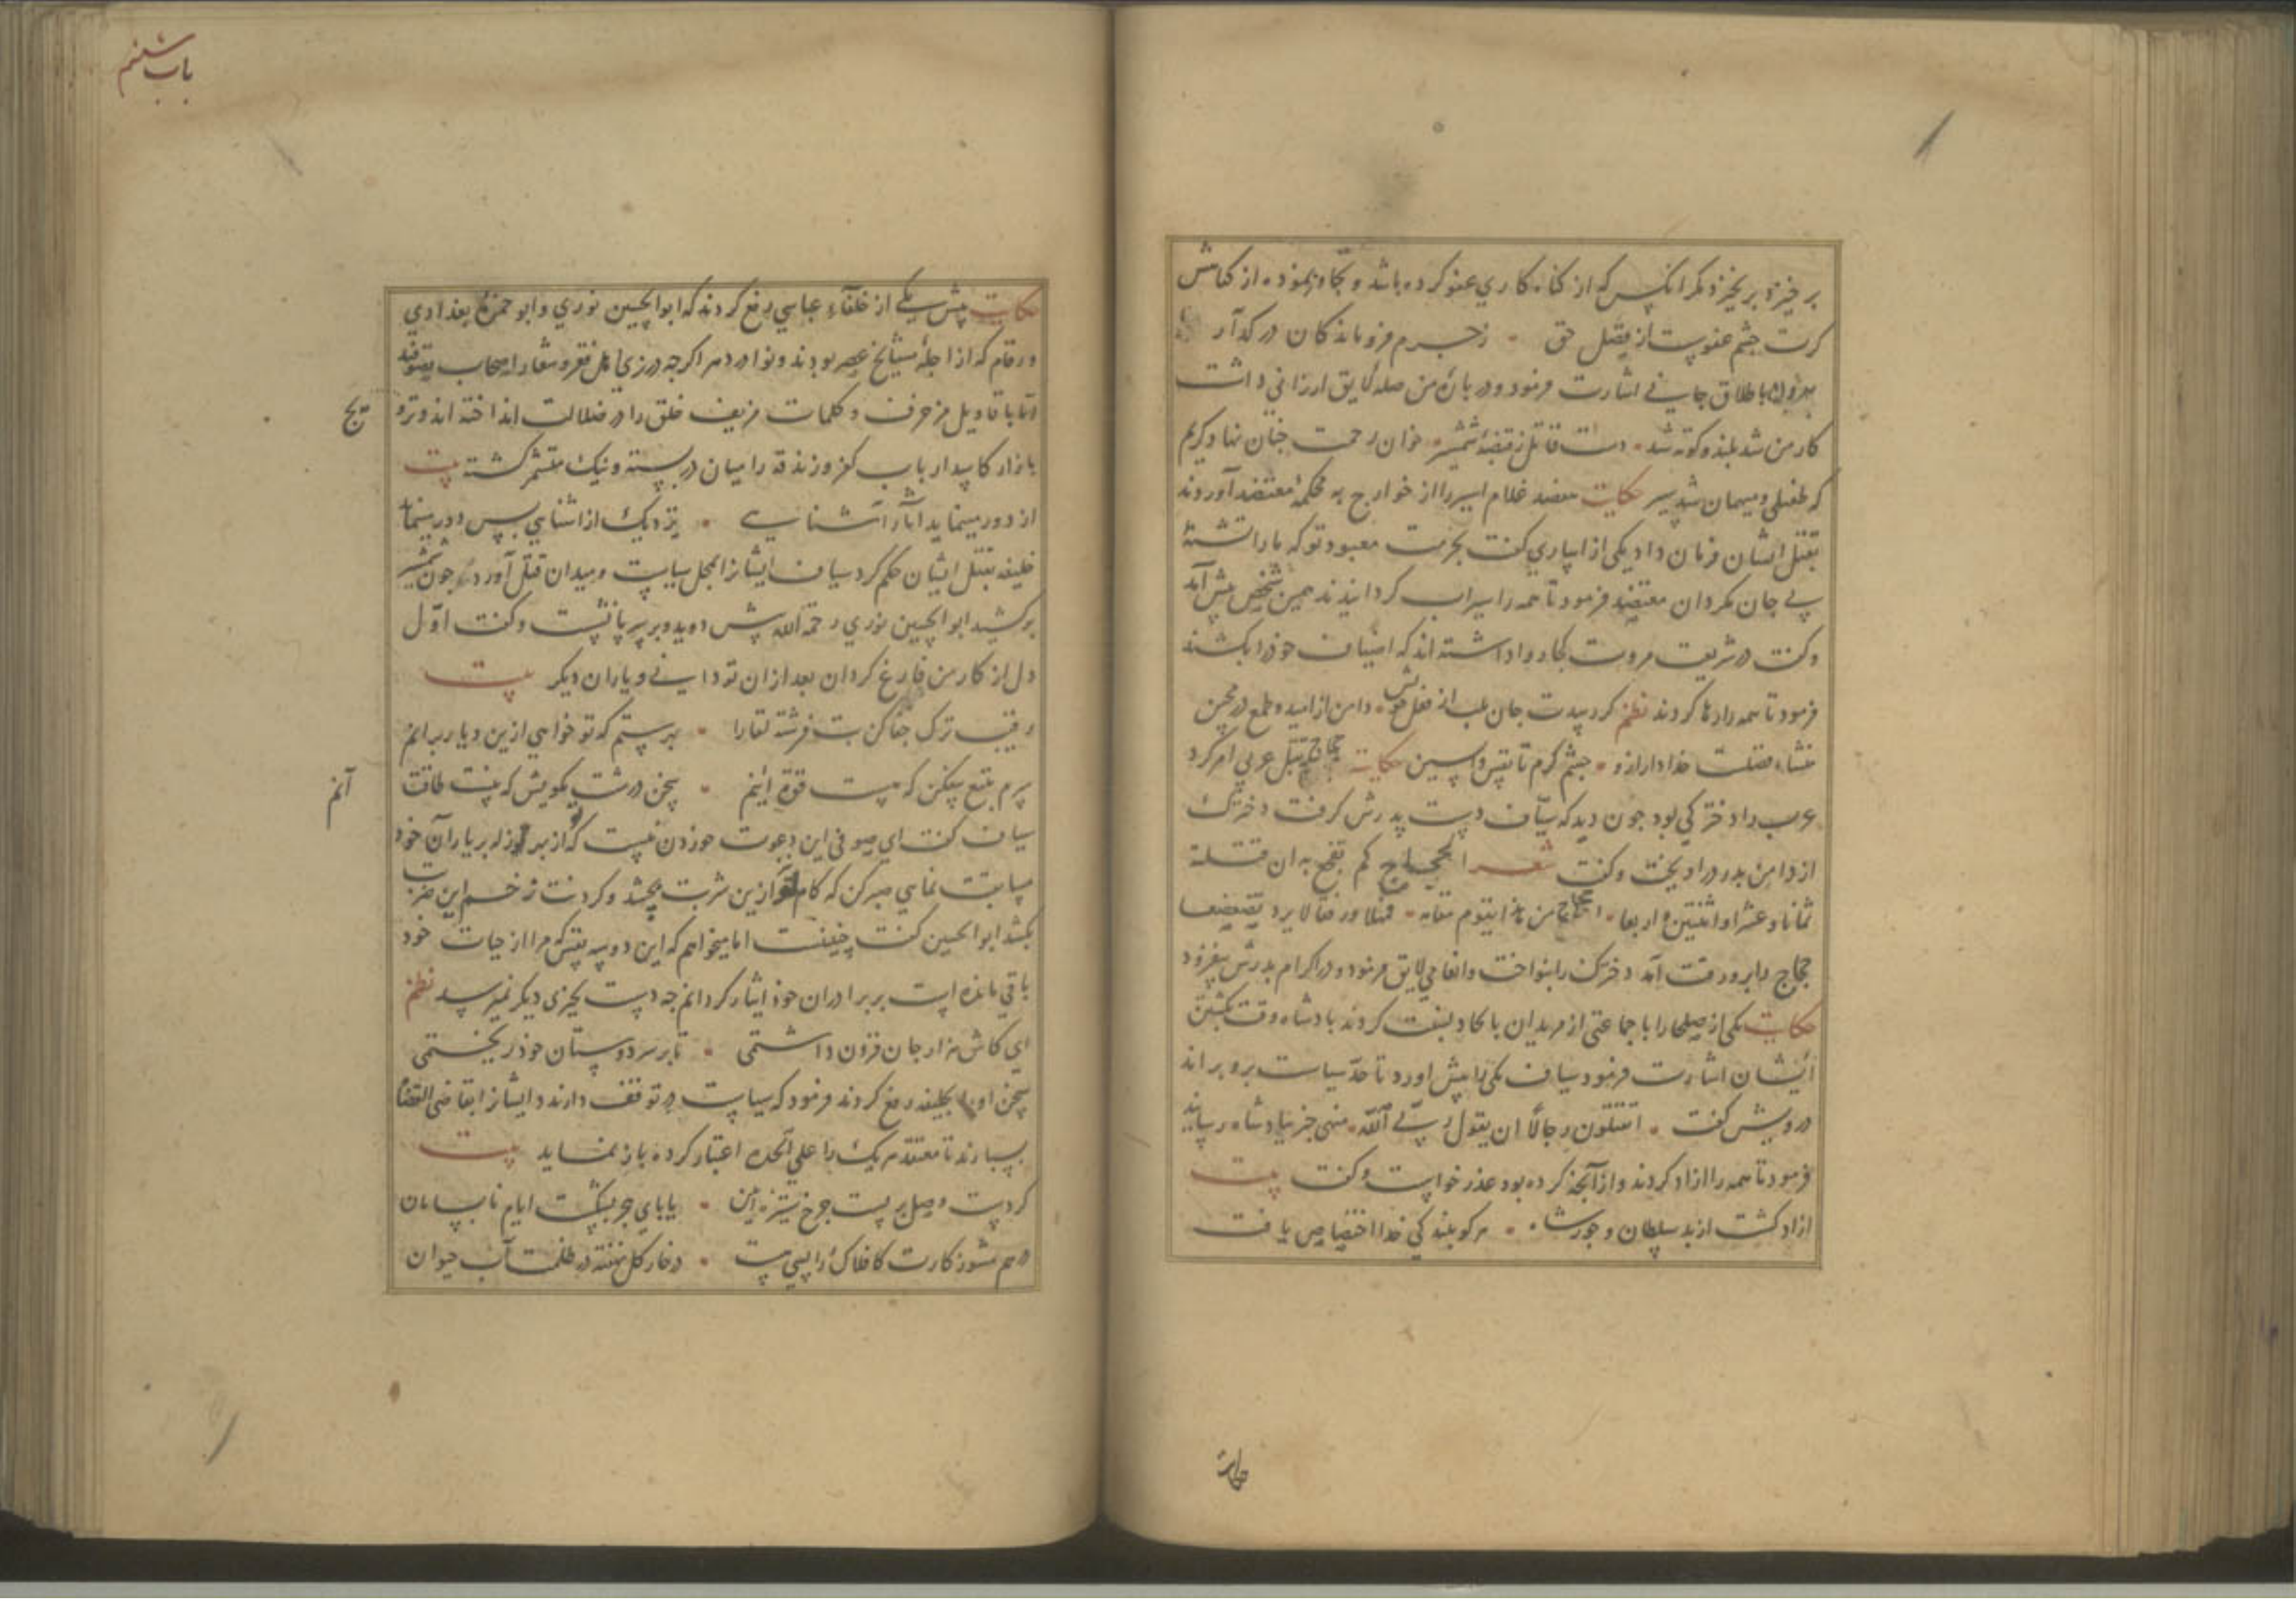 برخیزد برخیزد مگر انکس که از کناه کاری عفو کرده باشد و تجاوز نموده از کناهش
کرت چشم عفوست از فضل حق • ز جرم فروماندکان در کذار
باطلاق جانی اشارت فرمود و در باره من صله لایق ارزانی داشت
کار من شد بلند و کوته شد • دست قاتل ز قبضه شمشیر • خوان رحمت چنان نهاد کریم
که طفیلی و میهمان شد سیر حکایت معضد غلام اسیر را از خوارج به محکمه معتضد آوردند
بقتل ایشان فرمان داد یکی از اساری کفت بحرمت معبود تو که ما را تشنه
بی جان مکردان معتضد فرمود تا همه را سیراب کردانیدند همین شخص پیش آمد
و کفت در شریعت مروت کجا روا داشته اند که اضیاف خود را بکشند
فرمود تا همه را رها کردند نظم کردست جان طلب از فعل خویش • دامن از امید و طمع در مچین
منشاء فضلست خدا دار ازو • چشم کرم تا نفس واپسین حکایت حجاج بقتل عربی امر کرد
عرب را دخترکی بود چون دید که سیّاف دست پدرش کرفت دخترک
از دامن پدر در اویخت و کفت شعر احجاج کم تفجع به ان قتلته
ثمانا و عشرا و اثنتین و اربعا • احجاج من هذا یقوم مقامه •
حجاج را برو رقت آمد دخترک را بنواخت و انعامی لایق فرمود و در اکرام پدرش بیفزود
حکایت یکی از صلحا را با جماعتی از مریدان بالحاد نسبت کردند بادشاه وقت بکشتن
ایشان اشارت فرمود سیاف یکی را پیش اورد تا حدّ سیاست برو براند
درویش کفت • اتقتلون رجالا ان یقول ربی اللّه • منهی خبر ببادشاه رسانید
فرمود تا همه را ازاد کردند و از آنچه کرده بود عذر خواست و کفت بیت
ازاد کشت از بد سلطان و جور شاه • هر کو ببندکی خدا اختصاص یافت
حکایت
باب ششم
حکایت پیش یکی از خلفآء عباسی رفع کردند که ابو الحسین نوری و ابو حمزه بغدادی
و رقام که از اجلّه مشایخ عصر بودند و نوادر دهر اکرچه در زی اهل فقر و شعار اصحاب تصوفند
امّا با قاویل مزخرف و کلمات مزیف خلق را در ضلالت انداخته اند و ترو
یج
بازار کاسد ارباب کفر و زندقه را میان در بسته و نیک متشمر کشته بیت
از دور مینماید آثار آشنایی • نزدیک از اشنایی بس دور مینماید
خلیفه بقتل ایشان حکم کرد سیاف ایشانرا بمحل سیاست و میدان قتل آورد و چون شمشیر
برکشید ابو الحسین نوری رحمة اللّه پیش دوید و بر سر پا نشست و کفت اوّل
دل از کار من فارغ کردان بعد از ان تو دانی و یاران دیکر بیت
رقیب ترک جفا کن بت فرشته لقا را • بهر ستم که تو خواهی ازین دیار برانم
سرم بتیغ بیفکن که هست قوة اینم • سخن درشت مکویش که نیست طاقت
آنم
سیاف کفت ای صوفی این دعوت خوردن نیست که از بهر نواله بر یاران خود
مسابقت نمایی صبر کن که کام تو ازین شربت بچشد و کردنت زخم این ضربت
بکشد ابو الحسین کفت چنینست اما میخواهم که این دو سه نفس که مرا از حیات خود
باقی مانده است بر برادران خود ایثار کردانم چه دست بچیزی دیکر نمیرسد نظم
ای کاش هزار جان فزون داشتمی • تا بر سر دوستان خود ریختمی
سخن او را بخلیفه رفع کردند فرمود که سیاست در توقف دارند و ایشانرا بقاضی القضاة
بسپارند تا معتقد هر یک را علی الحده اعتبار کرده باز نماید بیت
کر دست وصل بر بست چرخ ستیزه آیین • یا پای هجر بشکست ایام نابسامان
درهم مشو ز کارت کافلاک را بسی هست • در خار کل نهفته در ظلمت آب حیوان